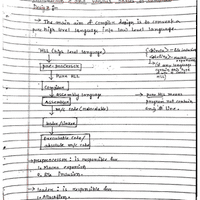 Design :-
→ The main aim of compiler design is to convert a
pure high level language into low level language.
HLL (high level language)
pre-processor
Pure HLL
Compiler
Assembly language
→ Pure HLL means
program not contain
any # line.
Assembler
m/c code (relocatable)
loader/linker
Executable code/
absolute m/c code
→ preprocessor : is responsible for
→ Macro expansion
→ file inclusion.
→ Loader : is responsible for
→ Allocation